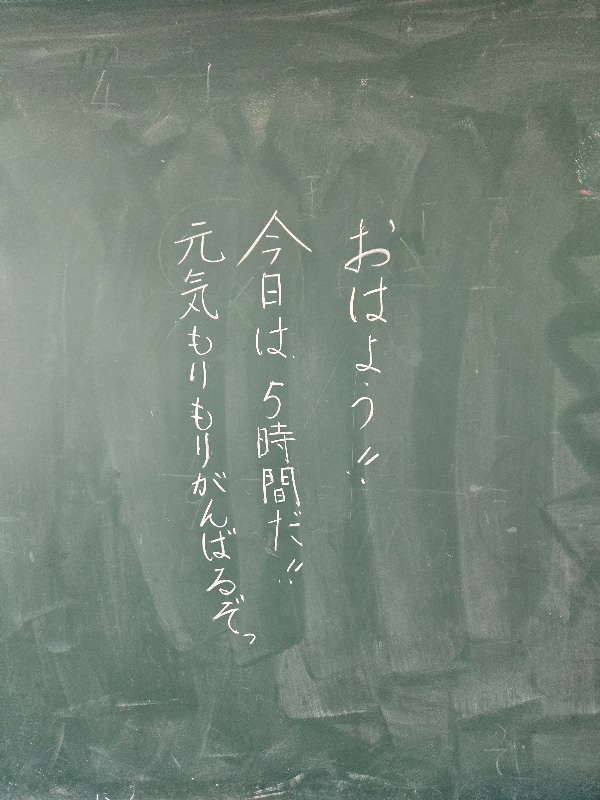 おはよう!!
今日は、5時間だ!!
元気もりもりがんばるぞっ